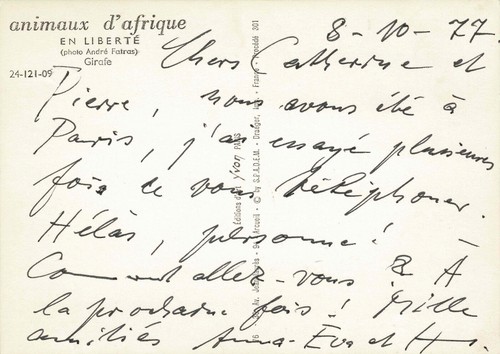 animaux d'afrique
EN LIBERTÉ
(photo André Fatras)
Girafe
24-121-09
8-10-77
Chers Catherine et
Pierre, nous avons été à
Paris, j'ai essayé plusieurs
fois de vous téléphoner.
Hélas, personne! –
Comment allez-vous? À
la prochaine fois! Mille
amitiés Anna-Eva et H
Éditions d'art yvon PARIS
Av. Arcueil - © by S.P.A.D.E.M. - Draeger, Imp. - France - Procédé 301